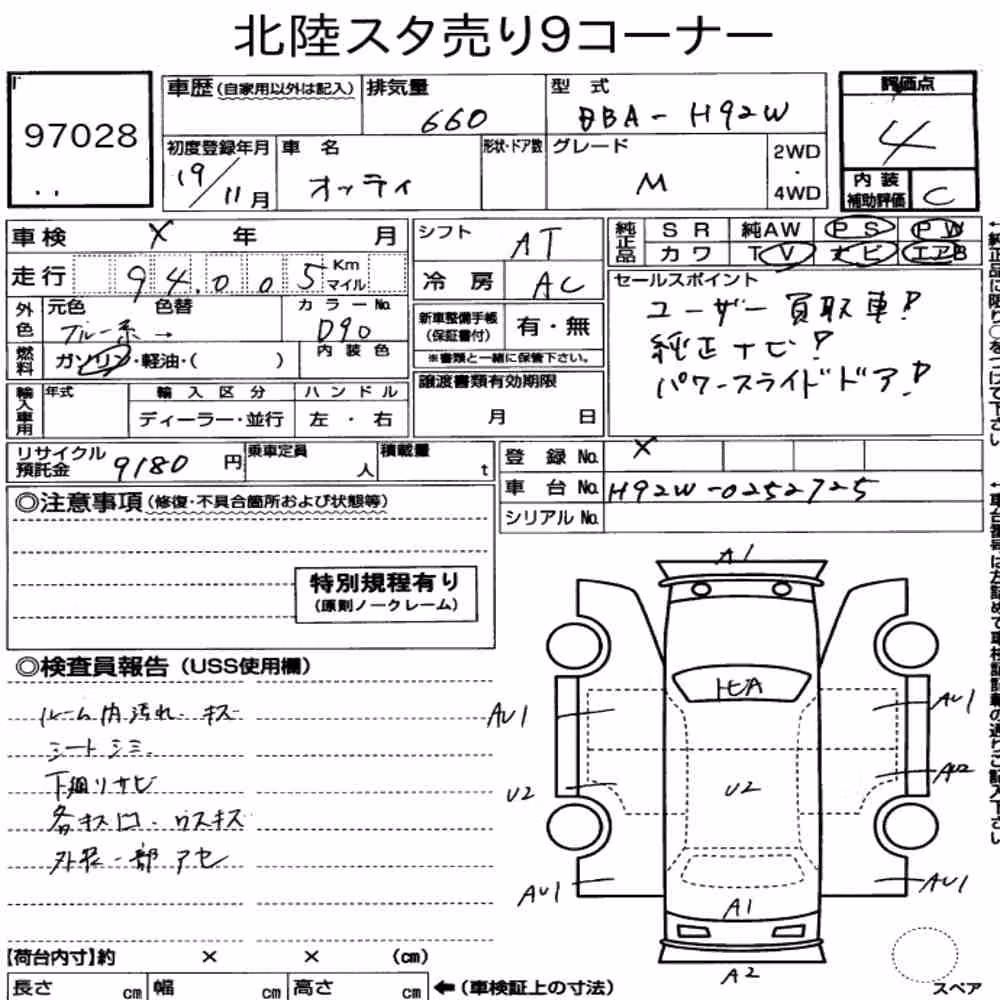 北陸スタ売り9コーナー
97028
車歴(自家用以外は記入) 排気量 型式 評価点
660 DBA-H92W 4
初度登録年月 車名 形状・ドア数 グレード 2WD・4WD
19/11月 オッティ M
内装補助評価 C
車検 X 年 月 シフト AT
純正品 SR 純AW PS PW
カワ TV ナビ エアB
走行 94,005 Km マイル 冷房 AC
セールスポイント
ユーザー買取車!
純正ナビ!
パワースライドドア!
外色 元色 色替 カラーNo.
ブルー系 → D90
新車整備手帳(保証書付) 有・無
※書類と一緒に保管下さい。
燃料 ガソリン・軽油・( ) 内装色
譲渡書類有効期限
月 日
輸入車用 年式 輸入区分 ハンドル
ディーラー・並行 左・右
リサイクル預託金 9180円 乗車定員 人 積載量 t
登録No. X
車台No. H92W-0252725
シリアルNo.
◎注意事項(修復・不具合箇所および状態等)
特別規程有り
(原則ノークレーム)
◎検査員報告(USS使用欄)
ルーム内汚れ・キズ
シートシミ
下廻りサビ
各キズ凹・ウスキズ
外装一部アセ
A1
AU1
AU1
U2
U2
A1
AU1
AU1
A2
【荷台内寸】約 × × (cm)
長さ cm 幅 cm 高さ cm ←(車検証上の寸法)
スペア
←純正品に限り○をつけて下さい